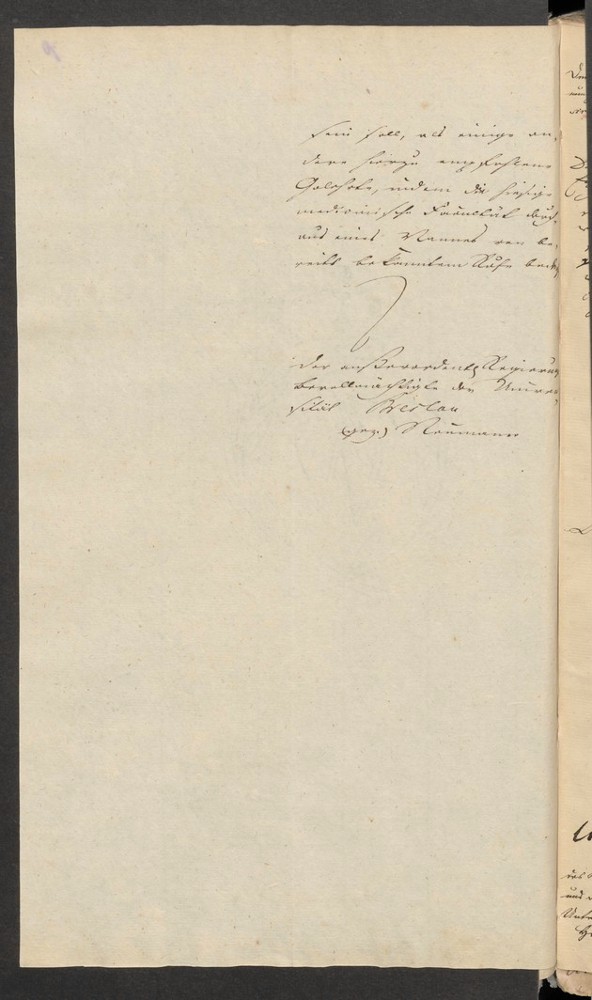 sein soll, als einige an-
dere hierzu empfohlene
Gelehrte, indem die hiesige
medicinische Facultät durch-
aus eines Mannes von be-
reits bekanntem Rufe bedarf.
Der außerordentl Regierungs
bevollmächtigte der Univer-
sität Breslau
(gez.) Neumann